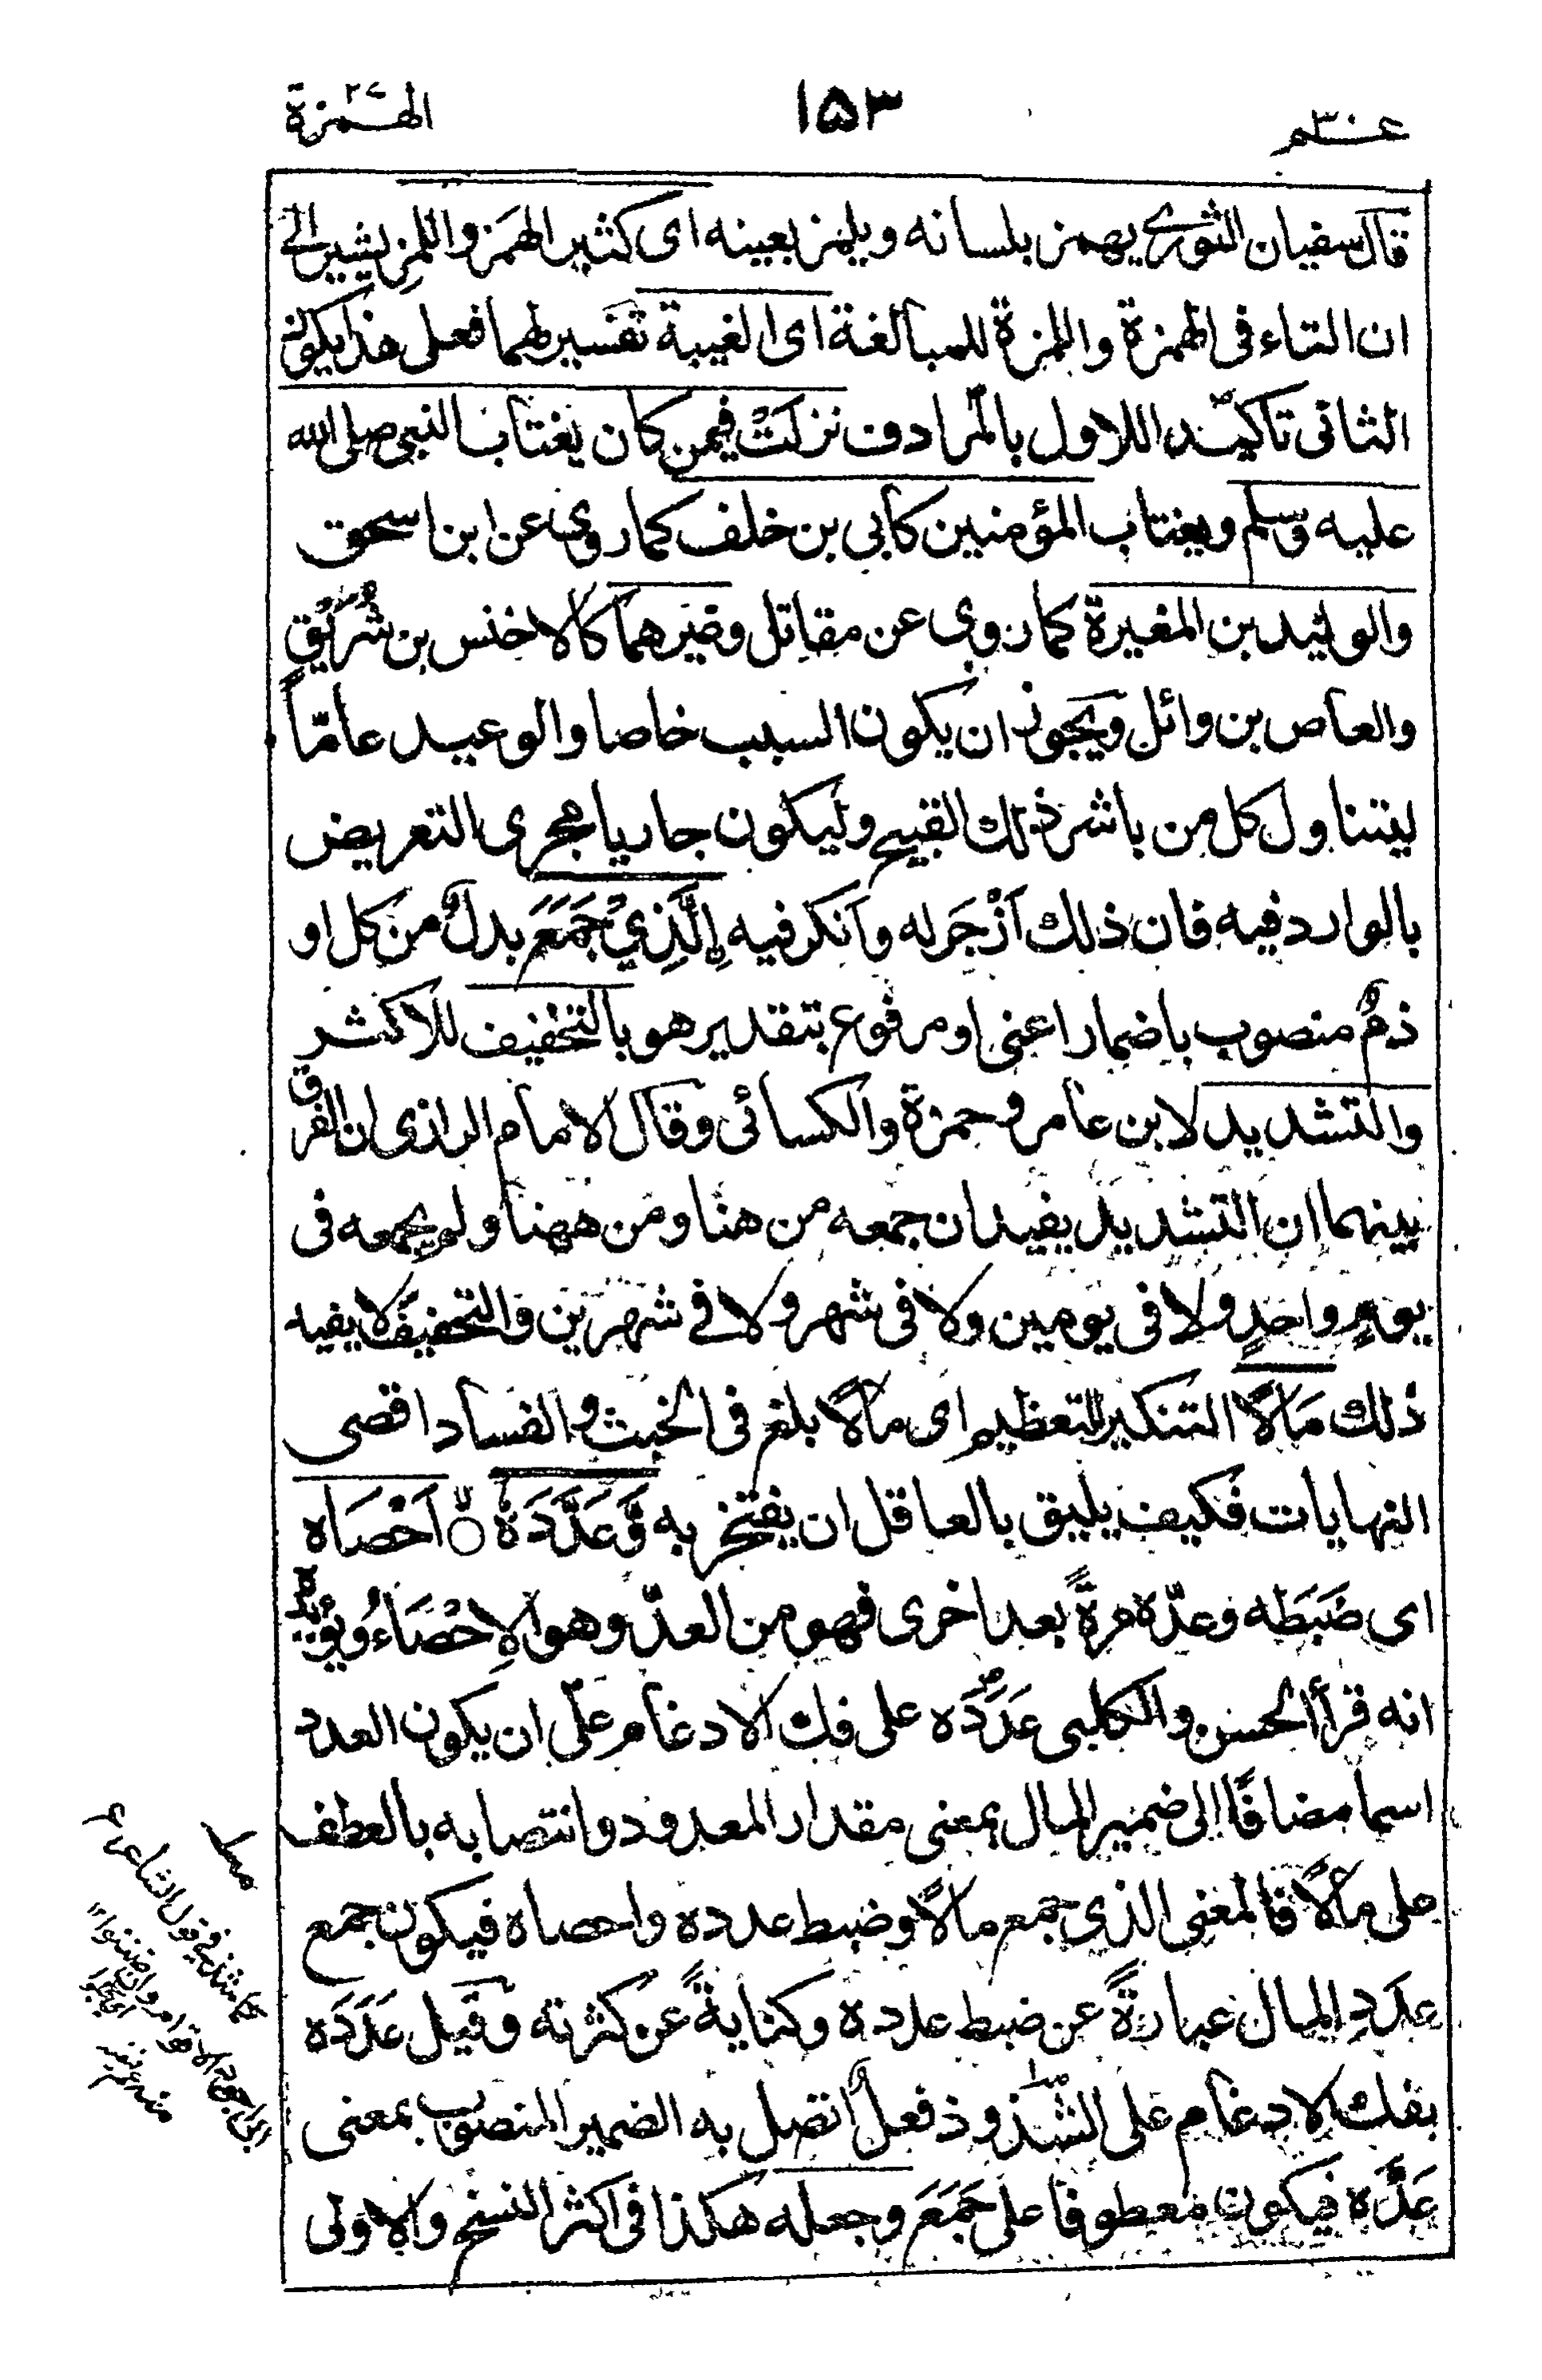 عــم ٣٠
١٥٣
الهمزة
قال سفيان الثوري يهمز بلسانه ويلمز بعينه اى كثير الهمَز واللمزِ يشير الى
ان التاء فى الهمزة واللمزة للمبالغة اى الغيبة تفسير لهما فعلى هذا يكون
الثانى تاكيدا للاول بالمرادف نزلَتْ فيمن كان يغتاب النبى صلى الله
عليه وسلم ويغتاب المؤمنين كأبى بن خلف كما روى عن ابن اسحق
والوليد بن المغيرة كما روى عن مقاتل وغيرهما كالاخنس بن شُرَيْقٍ
والعاص بن وائل ويجوز ان يكون السبب خاصا والوعيد عامّاً
ليتناول كل من باشر ذلك القبيح وليكون جاريا مجرى التعريض
بالوارد فيه فان ذلك اَزْجَر له واَنكر فيه اِلَّذِيْ جَمَعَ بدلٌ من كل او
ذمٌ منصوب باضمار اعنى او مرفوع بتقدير هو بالتخفيف للاكثر
والتشديد لابن عامر وحمزة والكسائى وقال الامام الرازى ان الفرق
بينهما ان التشديد يفيد ان جمعه من هنا ومن ههنا ولم يجمعه فى
يومٍ واحدٍ ولا فى يومين ولا فى شهر ولا فے شهرين والتخفيف لا يفيد
ذلك مَالًا التنكير للتعظيم اى مالًا بلغ فى الخبث والفساد اقصى
النهايات فكيف يليق بالعاقل ان يفتخر به وَّعَدَّدَهٗ ۙ اَحْصَاه
اى ضَبَطَه وعدّه مرةً بعد اخرى فهو من العدّ وهو الاِحْصَاءُ ويؤيده
انه قرأ الحسن والكلبى عَدَدَه على فك الادغام على ان يكون العدد
اسما مضافًا الى ضمير المال بمعنى مقدار المعدود وانتصابه بالعطف
على مالًا فالمعنى الذى جمع مالًا وضبط عدده واحصاه فيكون جمع
عدَدِ المال عبارةً عن ضبط عدده وكنايةً عن كثرته وقيل عَدَدَه
بفك الادغام على الشذوذ فعلٌ اتصل به الضمير المنصوب بمعنى
عَدَّه فيكون معطوفا على جَمَعَ وجعله هكذا فى اكثر النسخ والاولى
كما شذ فى قول الشاعر ع